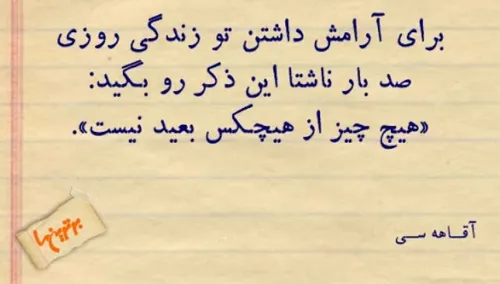 برای آرامش داشتن تو زندگی روزی
صد بار ناشتا این ذکر رو بگید:
«هیچ چیز از هیچکس بعید نیست».
آقاهه سی
برترینها